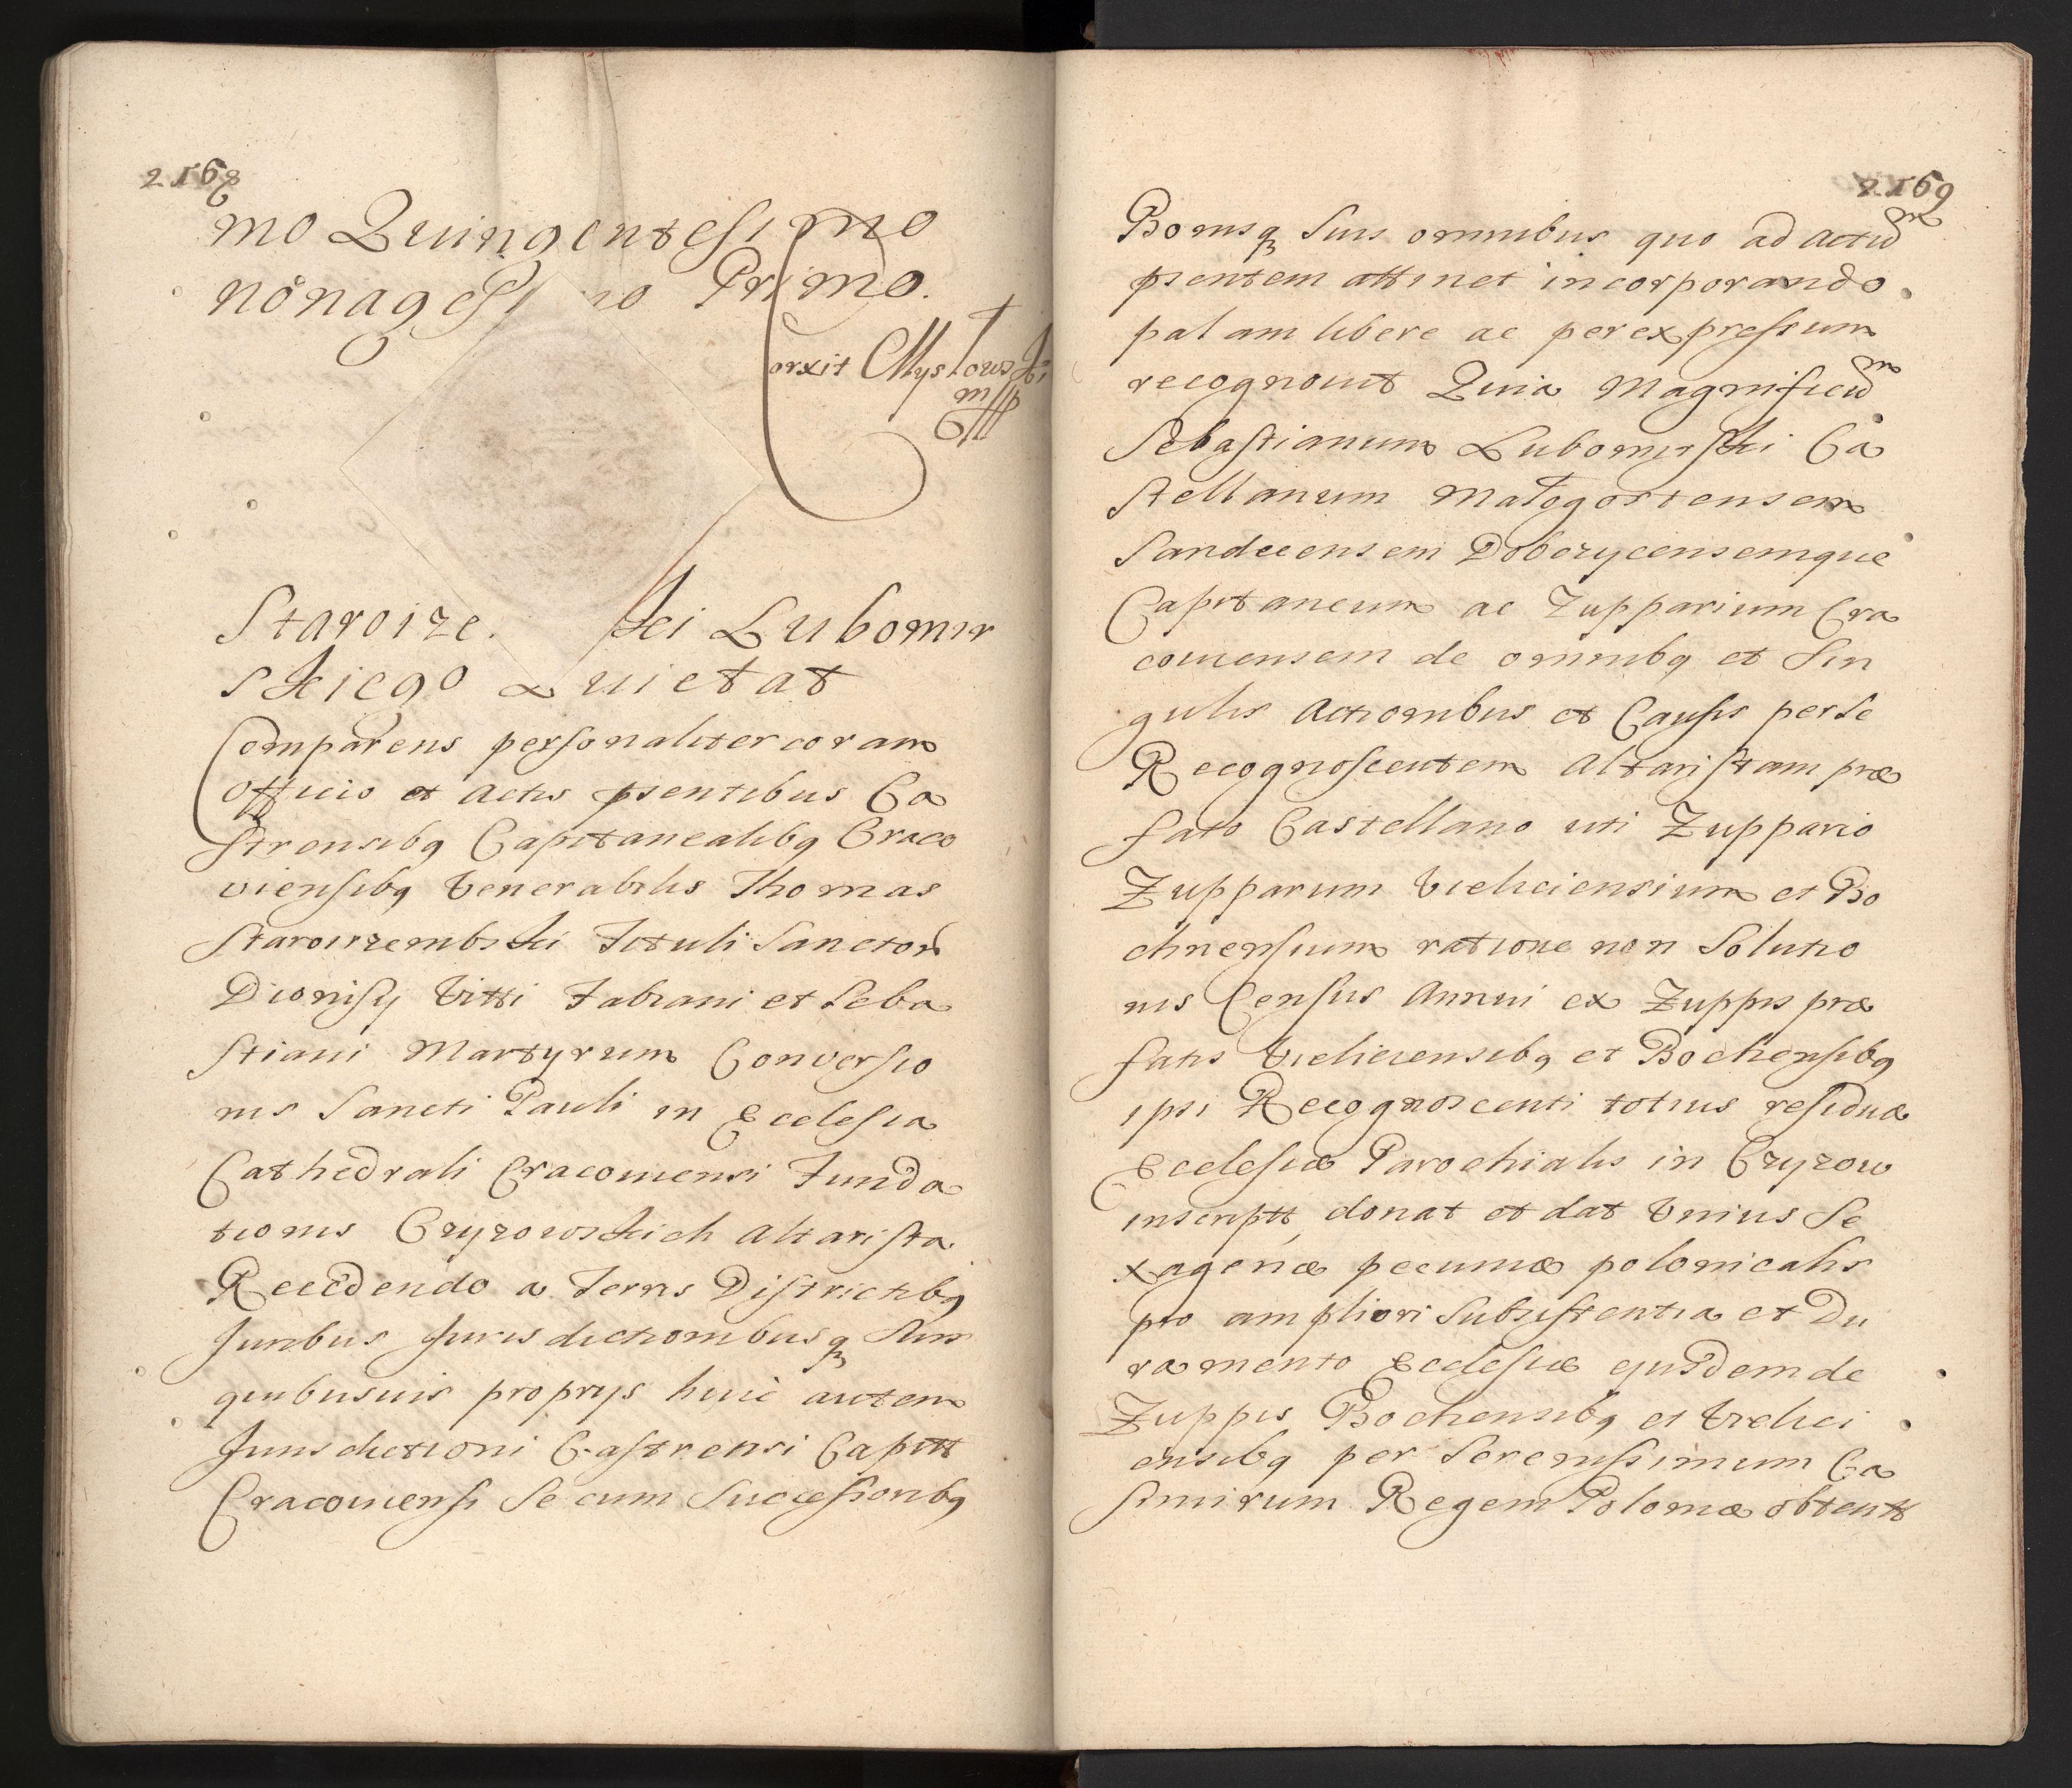 2168
mo Quingentesimo
nonagesi no Primo.
orxit Myslows
mpp
Staroize. ski Lubomir
skiego Quietat
Comparens personaliter coram
Officio et Actis psentibus Ca
strensibq Capitanealibq Craco
viensibq Venerabilis Thomas
Staroirzembski Tituli Sanctor
Dionisij Vitti Fabiani et Seba
stiani Martyrum Conversio
nis Sancti Pauli in Ecclesia
Cathedrali Cracoviensi Funda
tionis Czyzowskich Altarista
Recedendo a Terris Districtibq
Juribus Jurisdictionibusq Suis
quibusuis proprys huic autem
Jurisdictioni Castrensi Capitt
Cracouiensi Se cum Successionibq
2169
Bonisq Suis omnibus quo ad Actum
psentem attinet incorporando
palam libere ac per expressum
recognouit Quia Magnificum
Sebastianum Lubomirski Ca
stellanum Małogostensem
Sandecensem Dobczycensemque
Capitaneum ac Zupparium Cra
couiensem de omnibq et Sin
gulis Actionibus et Causis per Se
Recognoscentem Altaristam præ
fato Castellano uti Zuppario
Zupparum Vieliciensium et Bo
chnensium ratione non Solutio
nis Census Annui ex Zuppis præ
fatis Vieliciensibq et Bochensibq
ipsi Recognoscenti totius residuæ
Ecclesiæ Parochialis in Czyzow
inscriptt donat et dat Unius Se
xagenæ pecuniæ polonicalis
pro ampliori Subsistentia et Du
ramento Ecclesiæ ejusdem de
Zuppis Bochensibq et Vielici
ensibq per Serenissimum Ca
simirum Regem Poloniæ obtentt